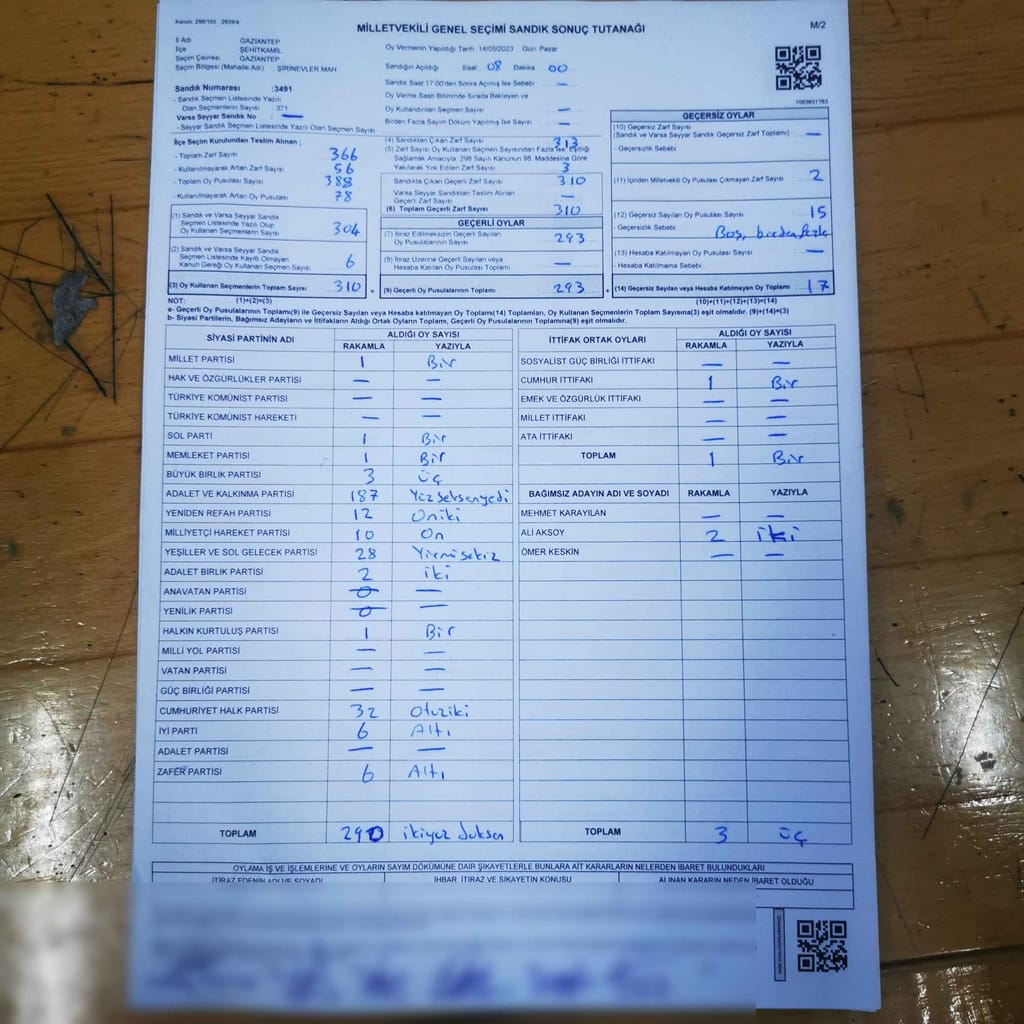 Kanun, 298/105 : 2839/4
MİLLETVEKİLİ GENEL SEÇİMİ SANDIK SONUÇ TUTANAĞI
M/2
İl Adı GAZİANTEP
İlçe ŞEHİTKAMİL
Seçim Çevresi GAZİANTEP
Seçim Bölgesi (Mahalle Adı) ŞİRİNEVLER MAH
Sandık Numarası :3491
- Sandık Seçmen Listesinde Yazılı
Olan Seçmenlerin Sayısı 371
Varsa Seyyar Sandık No : —
- Seyyar Sandık Seçmen Listesinde Yazılı Olan Seçmen Sayısı
Oy Vermenin Yapıldığı Tarih 14/05/2023 Gün Pazar
Sandığın Açıldığı Saat 08 Dakika 00
Sandık Saat 17:00'den Sonra Açılmış İse Sebebi —
Oy Verme Saati Bitiminde Sırada Bekleyen ve
Oy Kullandırılan Seçmen Sayısı —
Birden Fazla Sayım Döküm Yapılmış İse Sayısı —
1083651783
İlçe Seçim Kurulundan Teslim Alınan ;
- Toplam Zarf Sayısı 366
- Kullanılmayarak Artan Zarf Sayısı 56
- Toplam Oy Pusulası Sayısı 388
- Kullanılmayarak Artan Oy Pusulası 78
(1) Sandık ve Varsa Seyyar Sandık
Seçmen Listesinde Yazılı Olup
Oy Kullanan Seçmenlerin Sayısı 304
(2) Sandık ve Varsa Seyyar Sandık
Seçmen Listesinde Kayıtlı Olmayan
Kanun Gereği Oy Kullanan Seçmen Sayısı 6
(3) Oy Kullanan Seçmenlerin Toplam Sayısı 310 =
(4) Sandıktan Çıkan Zarf Sayısı 313
(5) Zarf Sayısı Oy Kullanan Seçmen Sayısından Fazla İse, Eşitliği
Sağlamak Amacıyla, 298 Sayılı Kanunun 98. Maddesine Göre
Yakılarak Yok Edilen Zarf Sayısı 3
Sandıkta Çıkan Geçerli Zarf Sayısı 310
Varsa Seyyar Sandıktan Teslim Alınan
Geçerli Zarf Sayısı —
(6) Toplam Geçerli Zarf Sayısı 310
GEÇERLİ OYLAR
(7) İtiraz Edilmeksizin Geçerli Sayılan
Oy Pusulalarının Sayısı 293
(8) İtiraz Üzerine Geçerli Sayılan veya
Hesaba Katılan Oy Pusulası Toplamı —
(9) Geçerli Oy Pusulalarının Toplamı 293 +
GEÇERSİZ OYLAR
(10) Geçersiz Zarf Sayısı
(Sandık ve Varsa Seyyar Sandık Geçersiz Zarf Toplamı) —
- Geçersizlik Sebebi
(11) İçinden Milletvekili Oy Pusulası Çıkmayan Zarf Sayısı 2
(12) Geçersiz Sayılan Oy Pusulası Sayısı 15
- Geçersizlik Sebebi Boş, birden fazla
(13) Hesaba Katılmayan Oy Pusulası Sayısı —
- Hesaba Katılmama Sebebi
(14) Geçersiz Sayılan veya Hesaba Katılmayan Oy Toplamı 17
NOT: (1)+(2)=(3) (10)+(11)+(12)+(13)=(14)
a- Geçerli Oy Pusulalarının Toplamı(9) ile Geçersiz Sayılan veya Hesaba katılmayan Oy Toplam(14) Toplamları, Oy Kullanan Seçmenlerin Toplam Sayısına(3) eşit olmalıdır. (9)+(14)=(3)
b- Siyasi Partilerin, Bağımsız Adayların ve İttifakların Aldığı Ortak Oyların Toplamı, Geçerli Oy Pusulalarının Toplamına(9) eşit olmalıdır.
SİYASİ PARTİNİN ADI ALDIĞI OY SAYISI
RAKAMLA YAZIYLA
MİLLET PARTİSİ 1 Bir
HAK VE ÖZGÜRLÜKLER PARTİSİ — —
TÜRKİYE KOMÜNİST PARTİSİ — —
TÜRKİYE KOMÜNİST HAREKETİ — —
SOL PARTİ 1 Bir
MEMLEKET PARTİSİ 1 Bir
BÜYÜK BİRLİK PARTİSİ 3 üç
ADALET VE KALKINMA PARTİSİ 187 Yüzseksenyedi
YENİDEN REFAH PARTİSİ 12 Oniki
MİLLİYETÇİ HAREKET PARTİSİ 10 On
YEŞİLLER VE SOL GELECEK PARTİSİ 28 Yirmisekiz
ADALET BİRLİK PARTİSİ 2 iki
ANAVATAN PARTİSİ 0 —
YENİLİK PARTİSİ 0 —
HALKIN KURTULUŞ PARTİSİ 1 Bir
MİLLİ YOL PARTİSİ — —
VATAN PARTİSİ — —
GÜÇ BİRLİĞİ PARTİSİ — —
CUMHURİYET HALK PARTİSİ 32 Otuziki
İYİ PARTİ 6 Altı
ADALET PARTİSİ — —
ZAFER PARTİSİ 6 Altı
TOPLAM 290 ikiyüz doksan
İTTİFAK ORTAK OYLARI ALDIĞI OY SAYISI
RAKAMLA YAZIYLA
SOSYALİST GÜÇ BİRLİĞİ İTTİFAKI — —
CUMHUR İTTİFAKI 1 Bir
EMEK VE ÖZGÜRLÜK İTTİFAKI — —
MİLLET İTTİFAKI — —
ATA İTTİFAKI — —
TOPLAM 1 Bir
BAĞIMSIZ ADAYIN ADI VE SOYADI RAKAMLA YAZIYLA
MEHMET KARAYILAN — —
ALİ AKSOY 2 iki
ÖMER KESKİN — —
TOPLAM 3 üç
OYLAMA İŞ VE İŞLEMLERİNE VE OYLARIN SAYIM DÖKÜMÜNE DAİR ŞİKAYETLERLE BUNLARA AİT KARARLARIN NELERDEN İBARET BULUNDUKLARI
İTİRAZ EDENİN ADI VE SOYADI İHBAR, İTİRAZ VE ŞİKAYETİN KONUSU ALINAN KARARIN NEDEN İBARET OLDUĞU